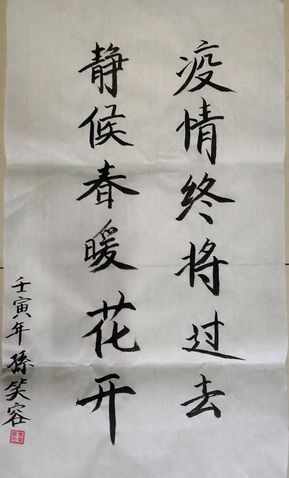 疫情终将过去
静候春暖花开
壬寅年 孫笑容